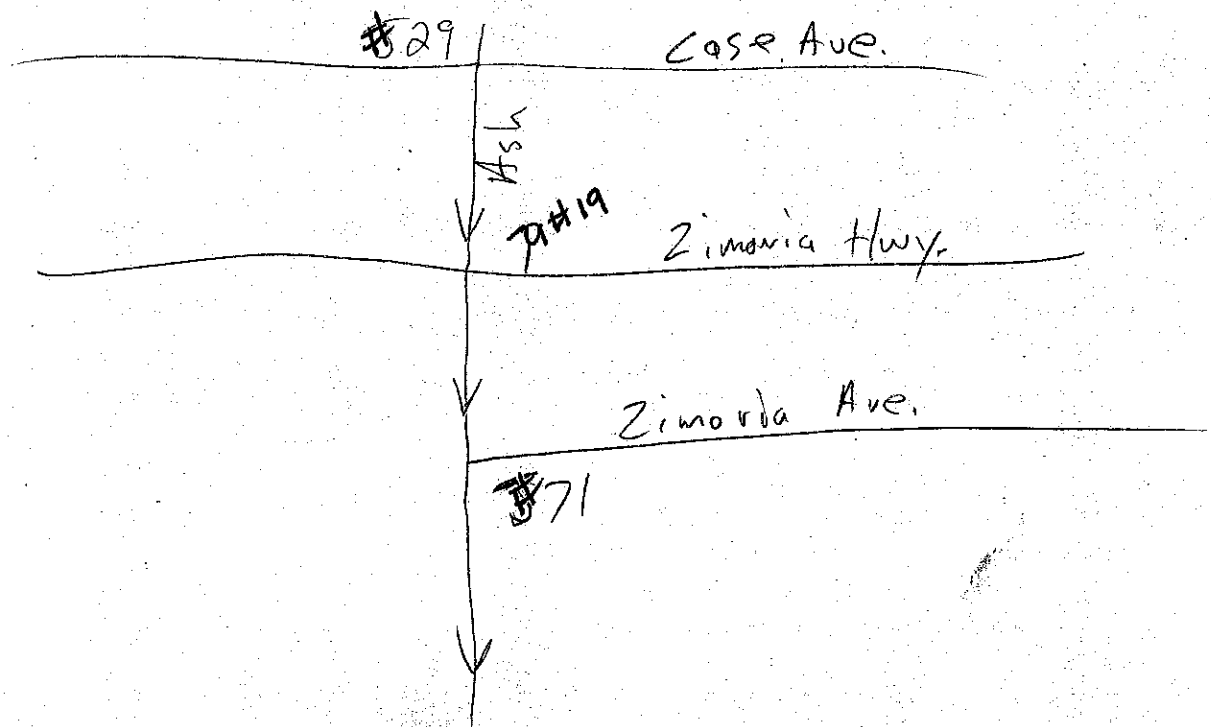 #29
Case Ave.
Ash
#19
Zimovia Hwy.
Zimovia Ave.
#71